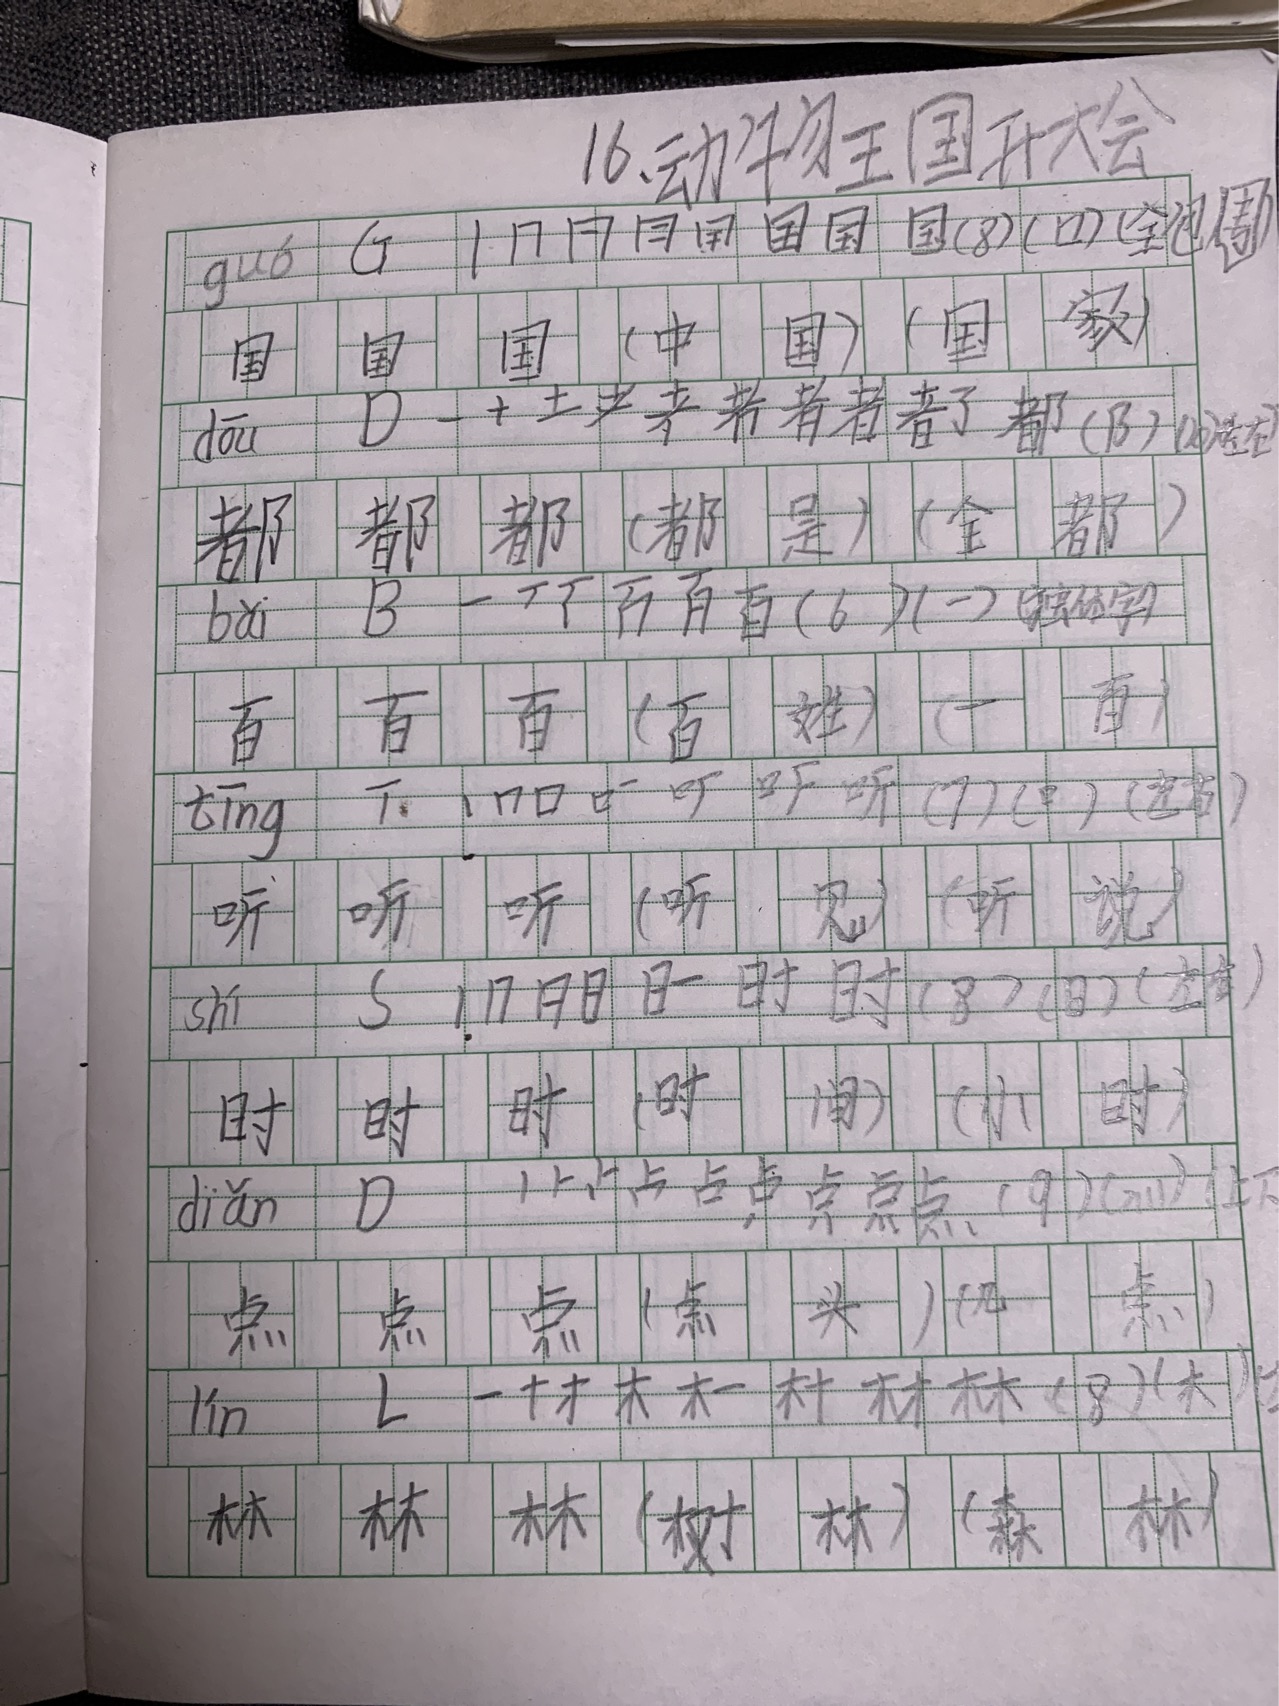 16.动物王国开大会
guó G 丨 冂 冂 月 国 国 国 国 (8) (囗) (全包围)
国 国 国 (中国) (国家)
dōu D 一 十 土 耂 者 者 者 者 者了 都 (阝) (10) 左右
都 都 都 (都是) (全都)
bǎi B 一 丆 丆 百 百 百 (6) (一) (独体字)
百 百 百 (百姓) (一百)
tīng T 丨 冂 口 口 叮 听 听 (7) (口) (左右)
听 听 听 (听见) (听说)
shí S 丨 冂 日 日 日一 时 时 (8) (日) (左右)
时 时 时 (时间) (小时)
diǎn D 丨 卜 占 占 点 点 点 点 (9) (灬) (上下
点 点 点 (点头) (几点)
lín L 一 十 才 木 木一 村 材 林 (8) (木)
林 林 林 (树林) (森林)